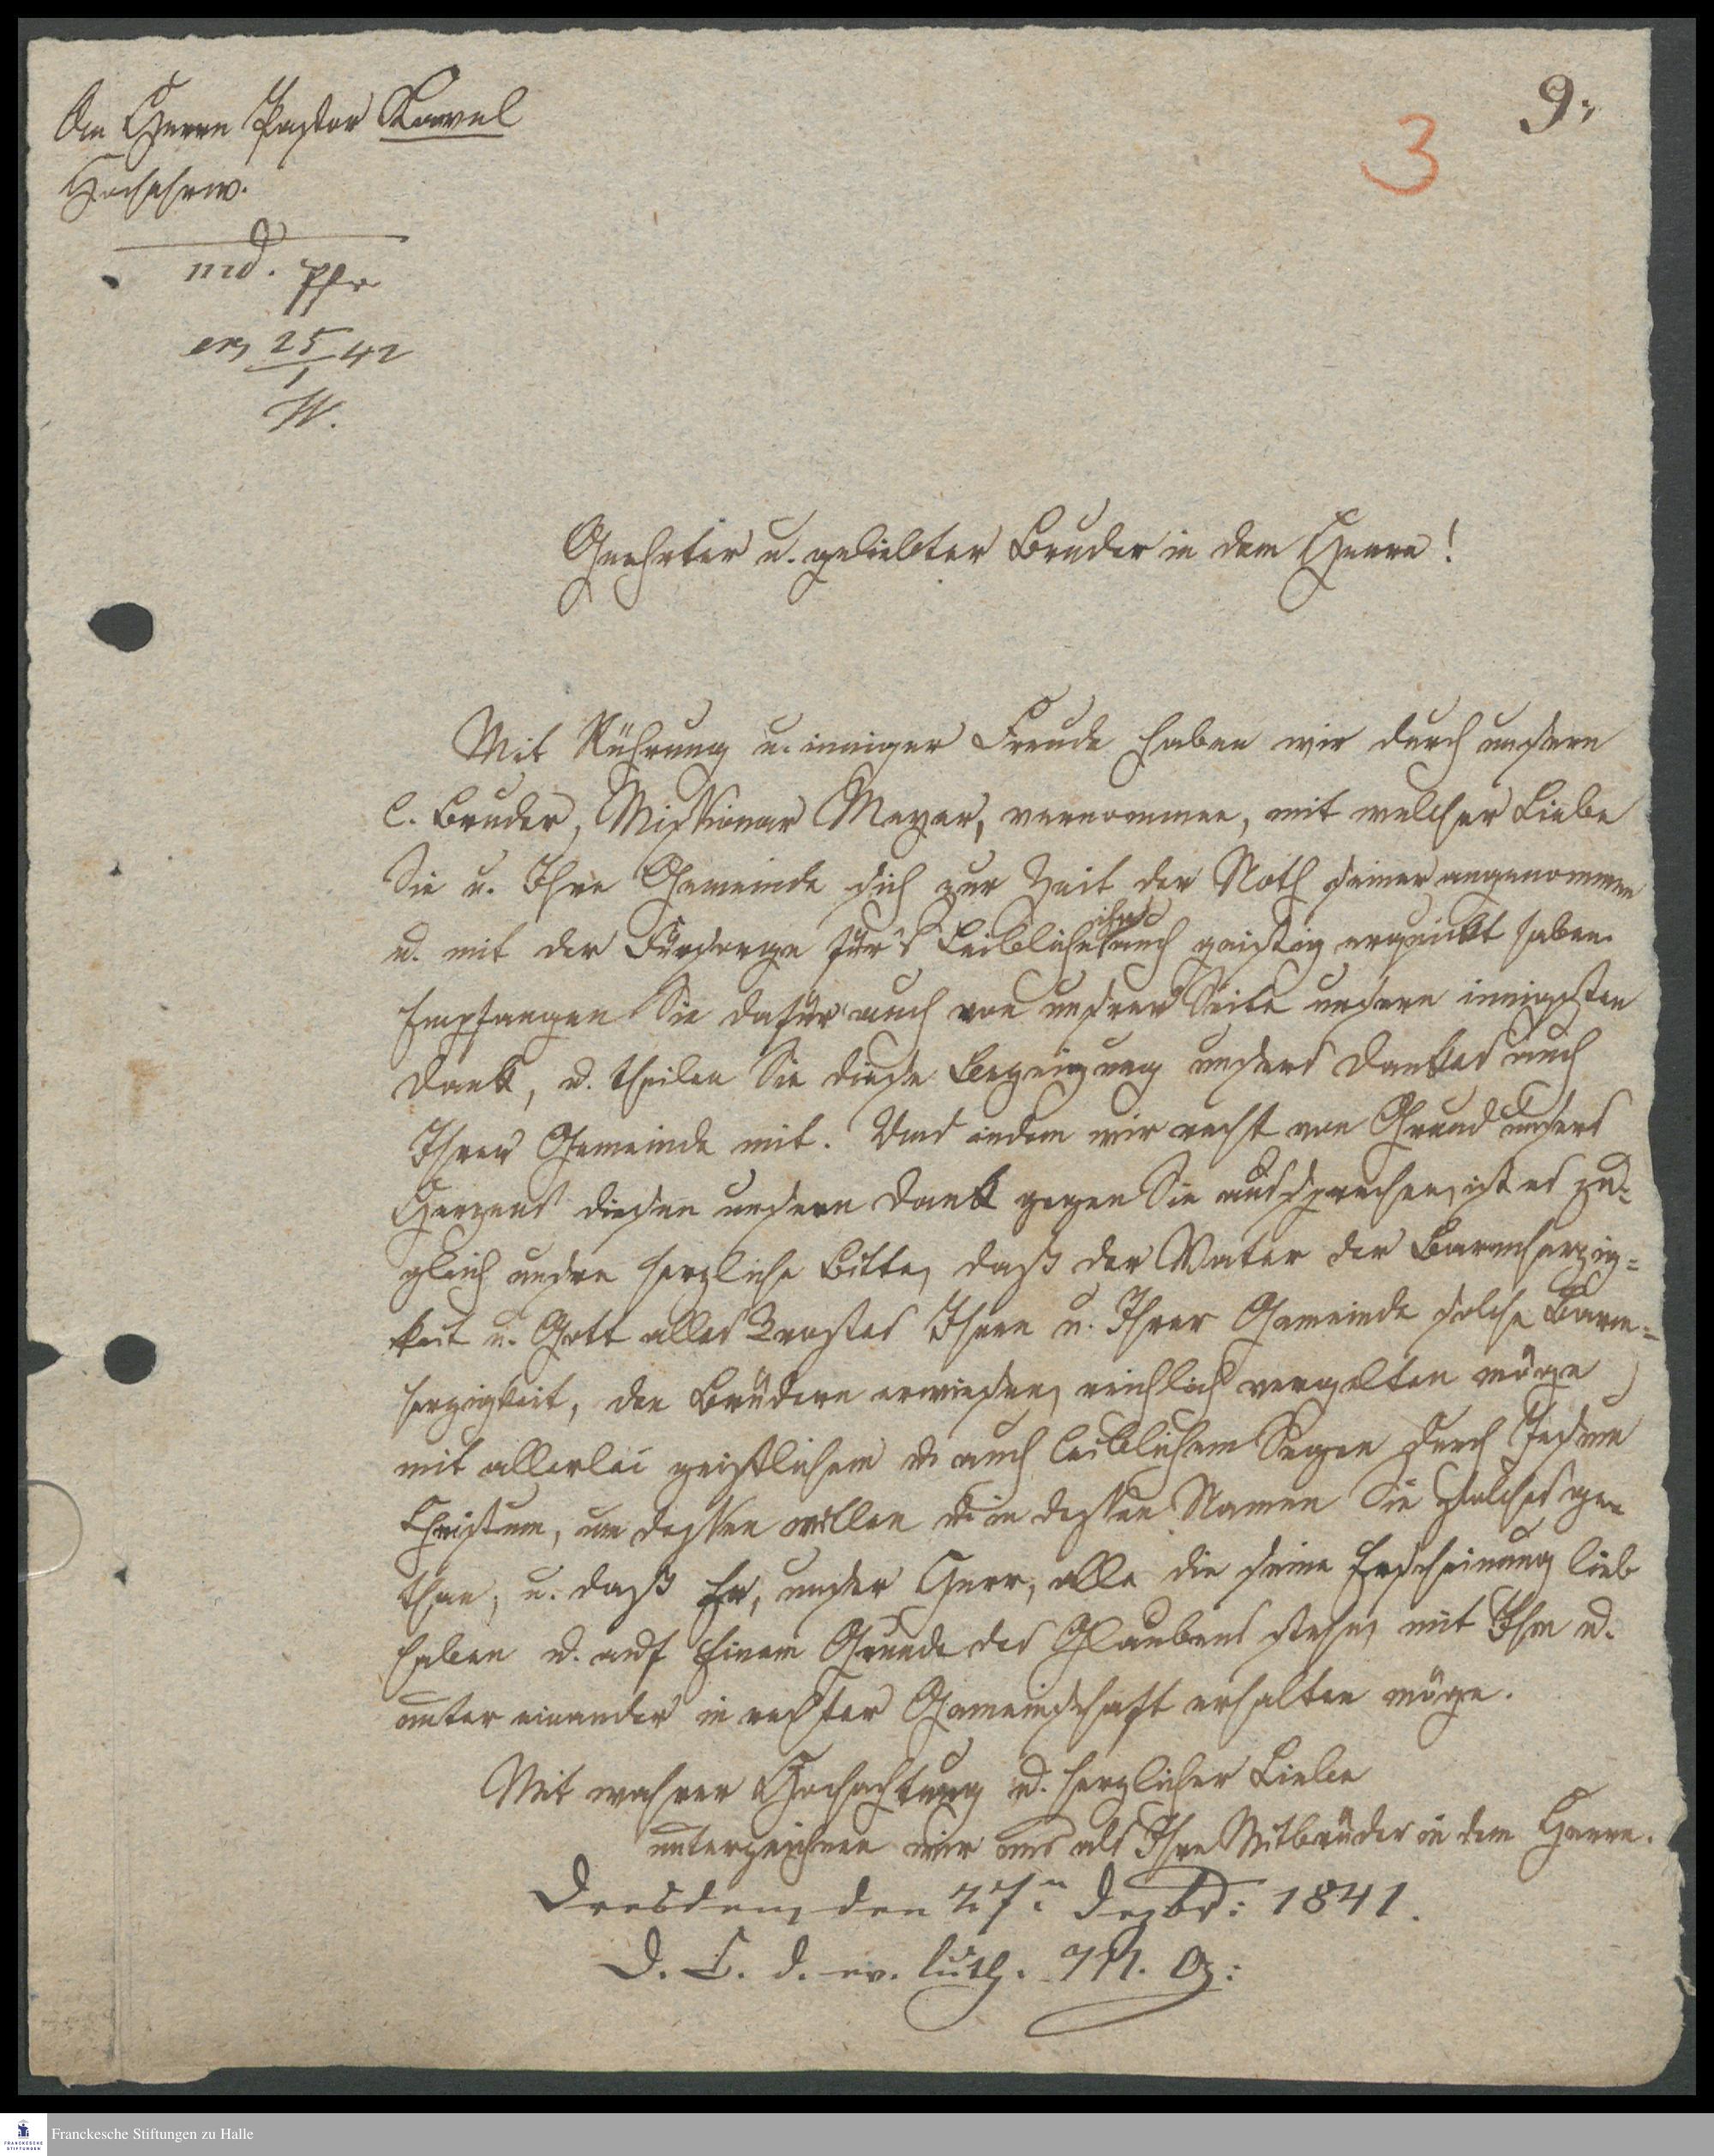 An Herrn Pastor Kavel
Hochehrw.
9.
3
md. Pfr
exp 25/1 42
W.
Geehrter u. geliebter Bruder in dem Herrn!
Mit Rührung u. inniger Freude haben wir durch unsern
l. Bruder, Missionar Meyer, vernommen, mit welcher Liebe
Sie u. Ihre Gemeinde sich zur Zeit der Noth seiner angenommen
u. mit der Fürsorge für's Leibliche ihn auch geistig erquickt haben.
Empfangen Sie dafür auch von unsrer Seite unsern innigsten
Dank, u. theilen Sie diese Bezeigung unsers Dankes auch
Ihrer Gemeinde mit. Und indem wir recht von Grund unsers
Herzens diesen unsern Dank gegen Sie aussprechen, ist es zu-
gleich unsre herzliche Bitte, daß der Vater der Barmherzig=
keit u. Gott alles Trostes Ihnen u. Ihrer Gemeinde solche Barm=
herzigkeit, den Brüdern erwiesen, reichlich vergelten möge
mit allerlei geistlichem u. auch leiblichem Segen durch Jesum
Christum, um dessen willen u. in dessen Namen Sie solches ge-
than, u. daß Er, unser Herr, alle die seine Erscheinung lieb
haben u. auf Einem Grunde des Glaubens stehen, mit Ihm u.
unter einander in rechter Gemeinschaft erhalten möge.
Mit wahrer Hochachtung u. herzlicher Liebe
unterzeichnen wir uns als Ihre Mitbrüder in dem Herrn.
Dresden, den 27n Dezbr: 1841.
D. C. d. ev. luth. M. G:
Franckesche Stiftungen zu Halle